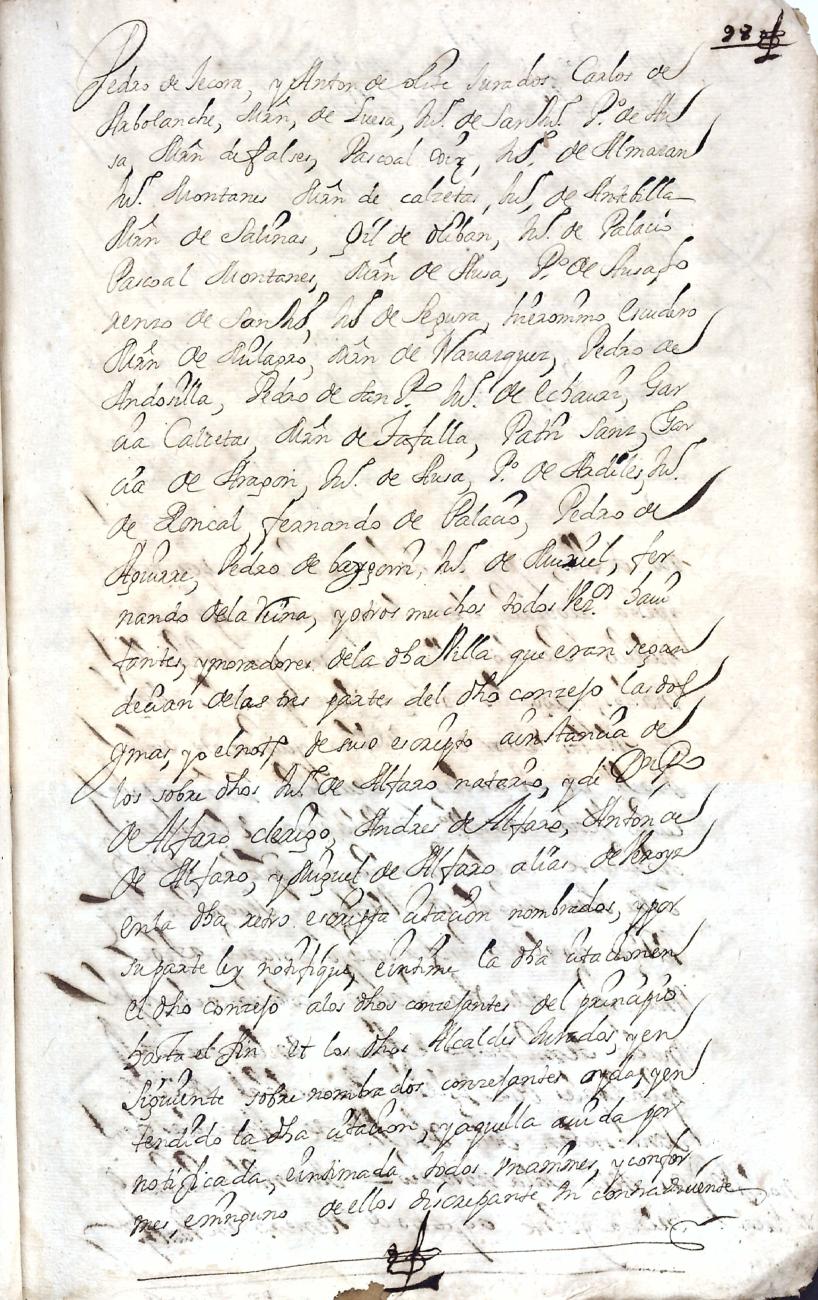 98
Pedro de Jecora, y Anton de olite Jurados Carlos de
Arbolanche, Mrn, de Luesa, Jus. de San Jus. Po. de Au
sa, Mrn de falses, Pascoal coiz, Jus. de Almazan
Jus. Montanes Mrn de calzetas, Jus, de Antilla
Mrn de Salinas, Gil de oliban, Jus. de Palacio
Pascoal Montanes, Mrn de Ausa, Po. de Ausa, Lo
renzo de San Jus, Jus de Segura, hieronimo Escudero
Mrn de Milagro, Mrn de Navazquez, Pedro de
Andosilla, Pedro de San Po. Jus. de Echavarri, Gar
cia Calzetas, Mrn de Tafalla, Sanz, Gar
cia de Aragon, Jus. de Ausa, Po. de Jus.
de Roncal, fernando de Palacio, Pedro de
Aguirre, Pedro de baygorri, Jus. de fer
nando dela Reina, y otros muchos todos vezos havi
tantes, y moradores dela dha Villa que eran segun
decian delas tres partes del dho conzejo las dos
y mas, yo el noto de suso escripto a instancia de
los sobre dhos Jus. de Alfaro notario, y de Dn Po
de Alfaro clerigo, Andres de Alfaro, Anton de
de Alfaro, y Miguel de Alfaro alias de Arroyz
en la dha retro escripta citacion nombrados, y por
su parte ley notifique, e intime la dha citacion en
el dho conzejo alos dhos conzejantes del principio
hasta el fin et los dhos Alcaldes Jurados, y en
siguiente sobre nombrados conzejantes oyda, y en
tendido la dha citacion, y aquella avida por
notificada, e intimada todos unanimes, y confor
mes, e ninguno de ellos discrepante ni contradiciente